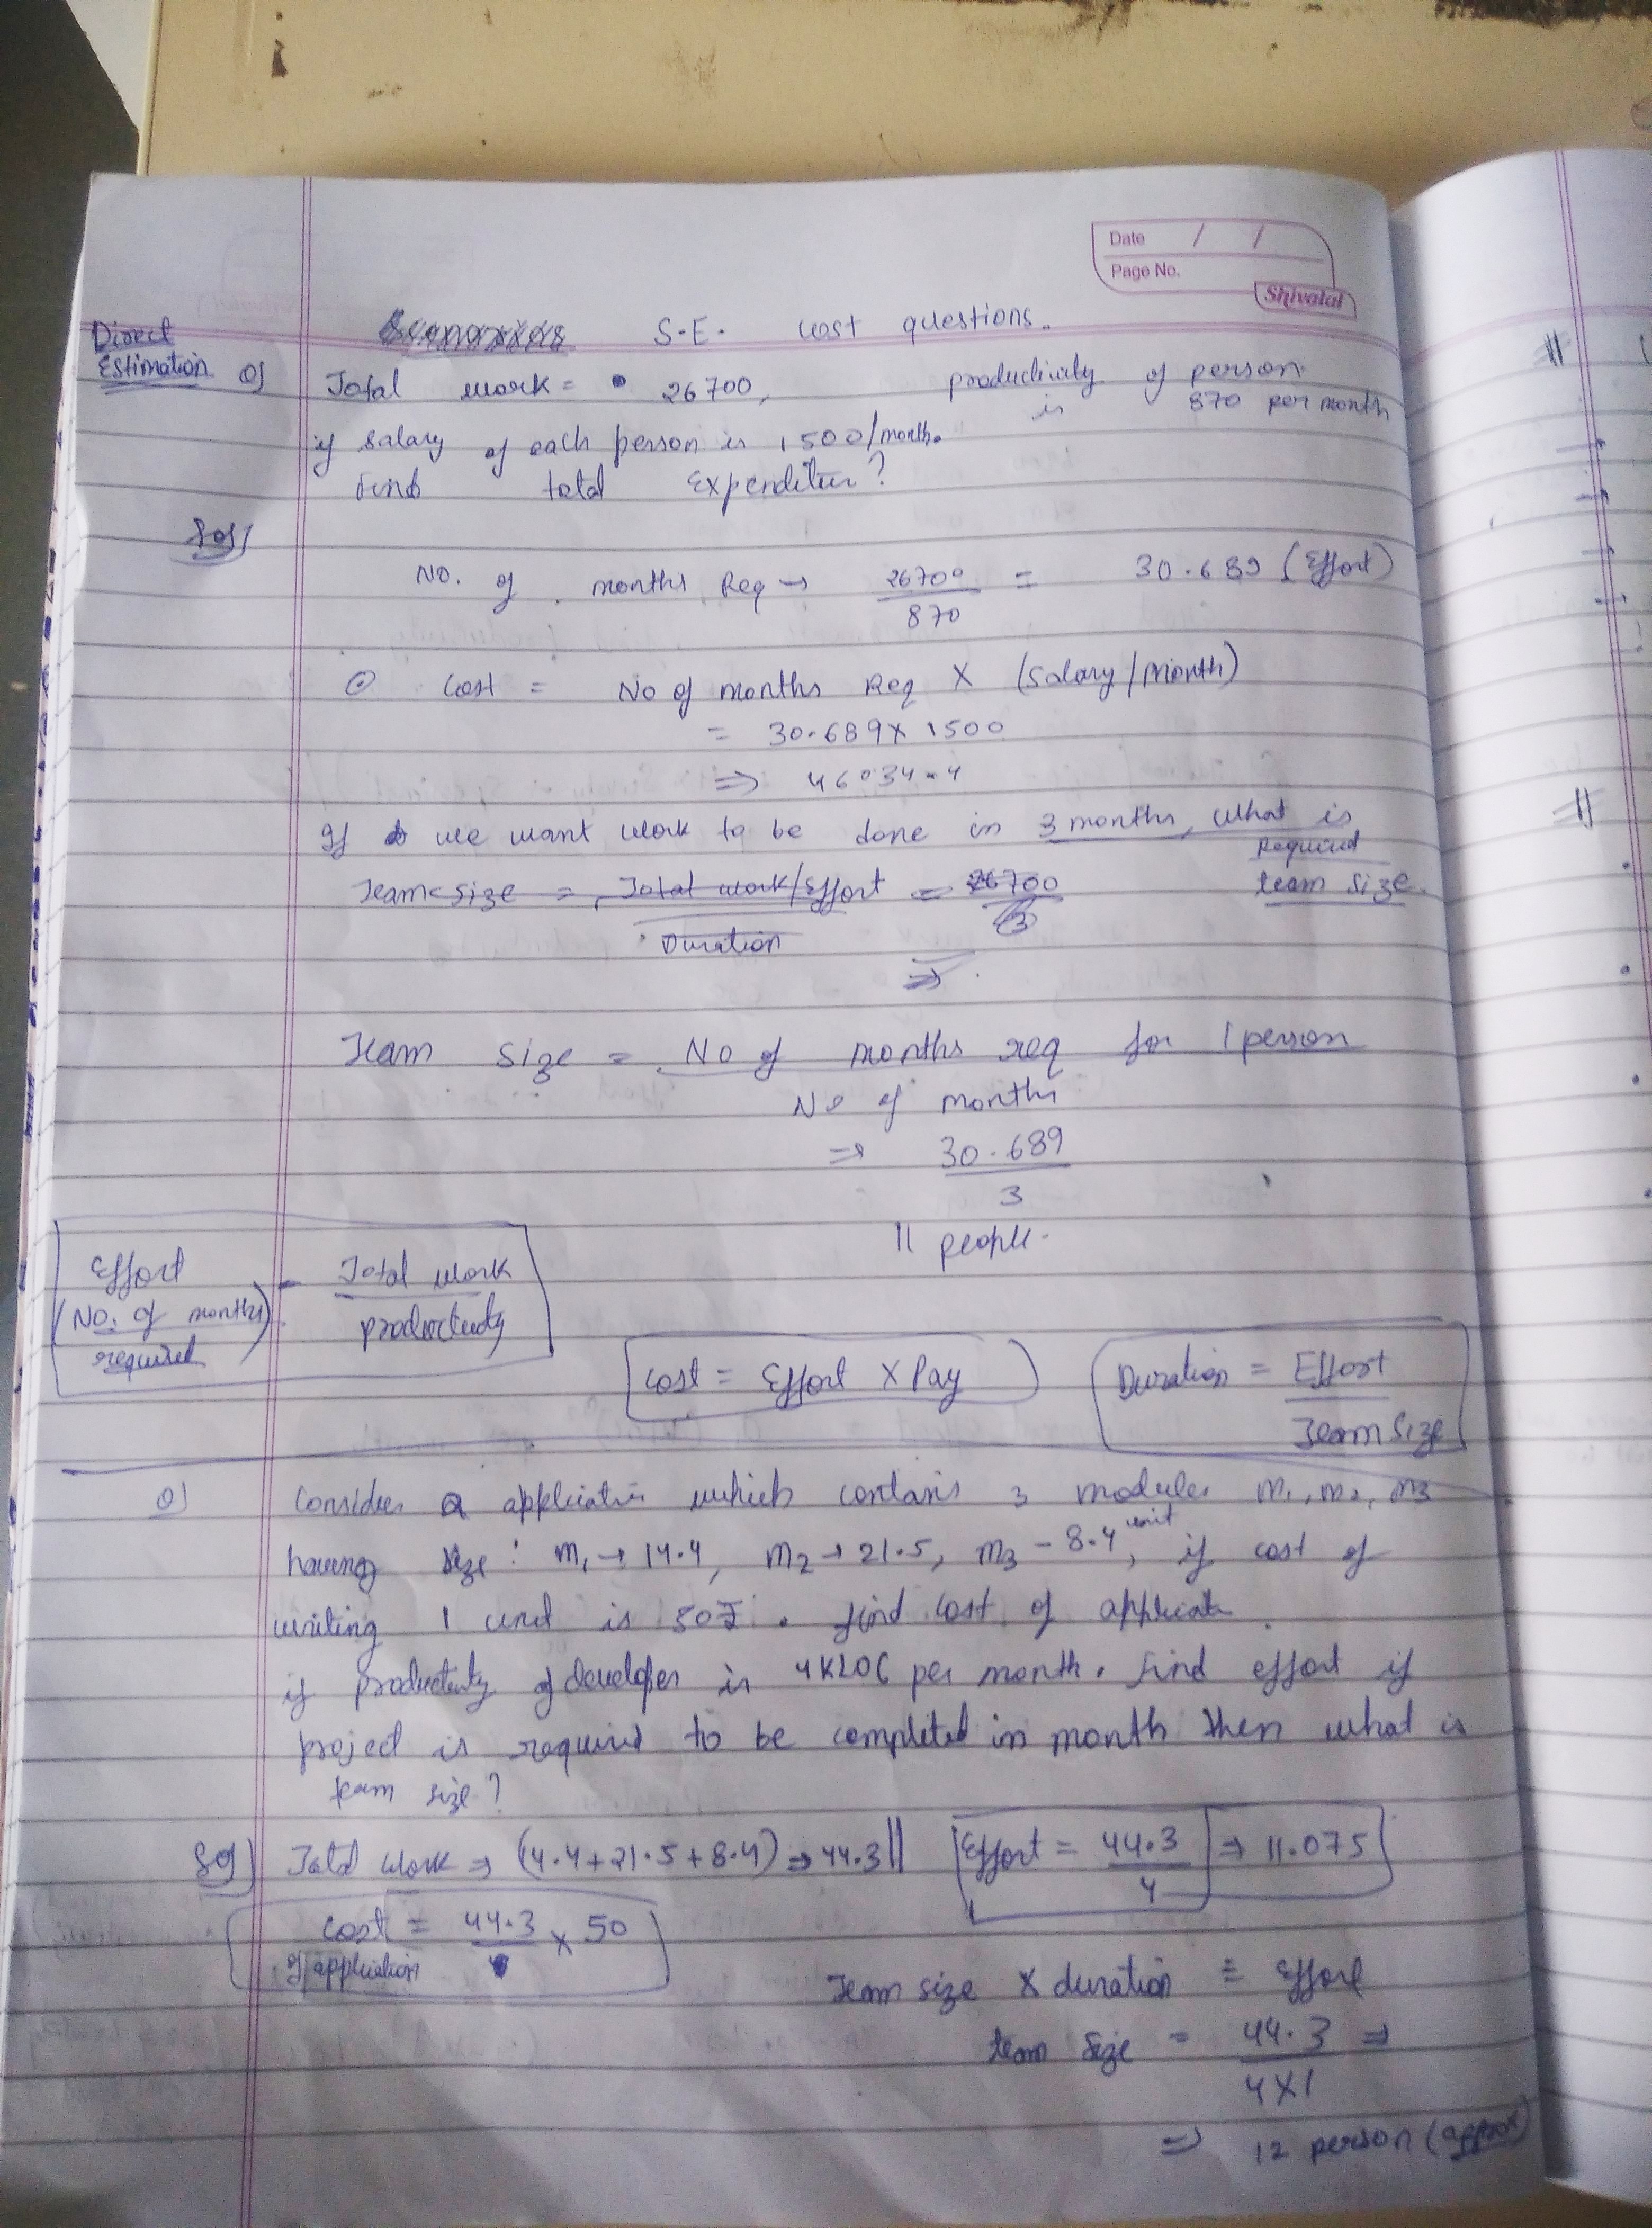 Date / /
Page No.
Shivalal
Direct
Estimation
S.E. cost questions.
Q) Total work = 26700, productivity of person
is 870 per month
if salary of each person is 1500/month.
Find total Expenditur?
Sol)
No. of months Req → 26700/870 = 30.689 (Effort)
cost = No of months Req X (Salary/month)
= 30.689 X 1500
⇒ 46034.4
If we want work to be done in 3 months, what is
Required
team size.
Team size = Total work/Effort / Duration = 26700/3
⇒
Team size = No of months req for 1 person
No of months
⇒ 30.689
3
11 people.
Effort (No. of months required) = Total work / productivity
Cost = Effort X Pay
Duration = Effort / Team Size
Q) Consider a application which contains 3 modules m1, m2, m3
having size : m1 → 14.4, m2 → 21.5, m3 - 8.4 unit, if cost of
writing 1 unit is 50₹. find cost of applicat
if productivity of developer is 4KLOC per month. Find effort if
project is required to be completed in month then what is
team size?
Sol) Total work ⇒ (14.4+21.5+8.4) ⇒ 44.3 || Effort = 44.3/4 ⇒ 11.075
cost of application = 44.3 X 50
Team size X duration = Effort
team size = 44.3 ⇒
4X1
⇒ 12 person (approx)